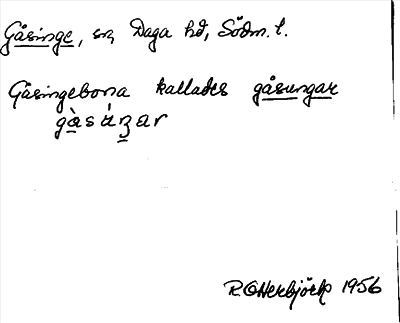 Gåsinge, sn, Daga hd, Södm. l.
Gåsingeborna kallades gåsungar
gàsúŋar
R. Otterbjörk 1956